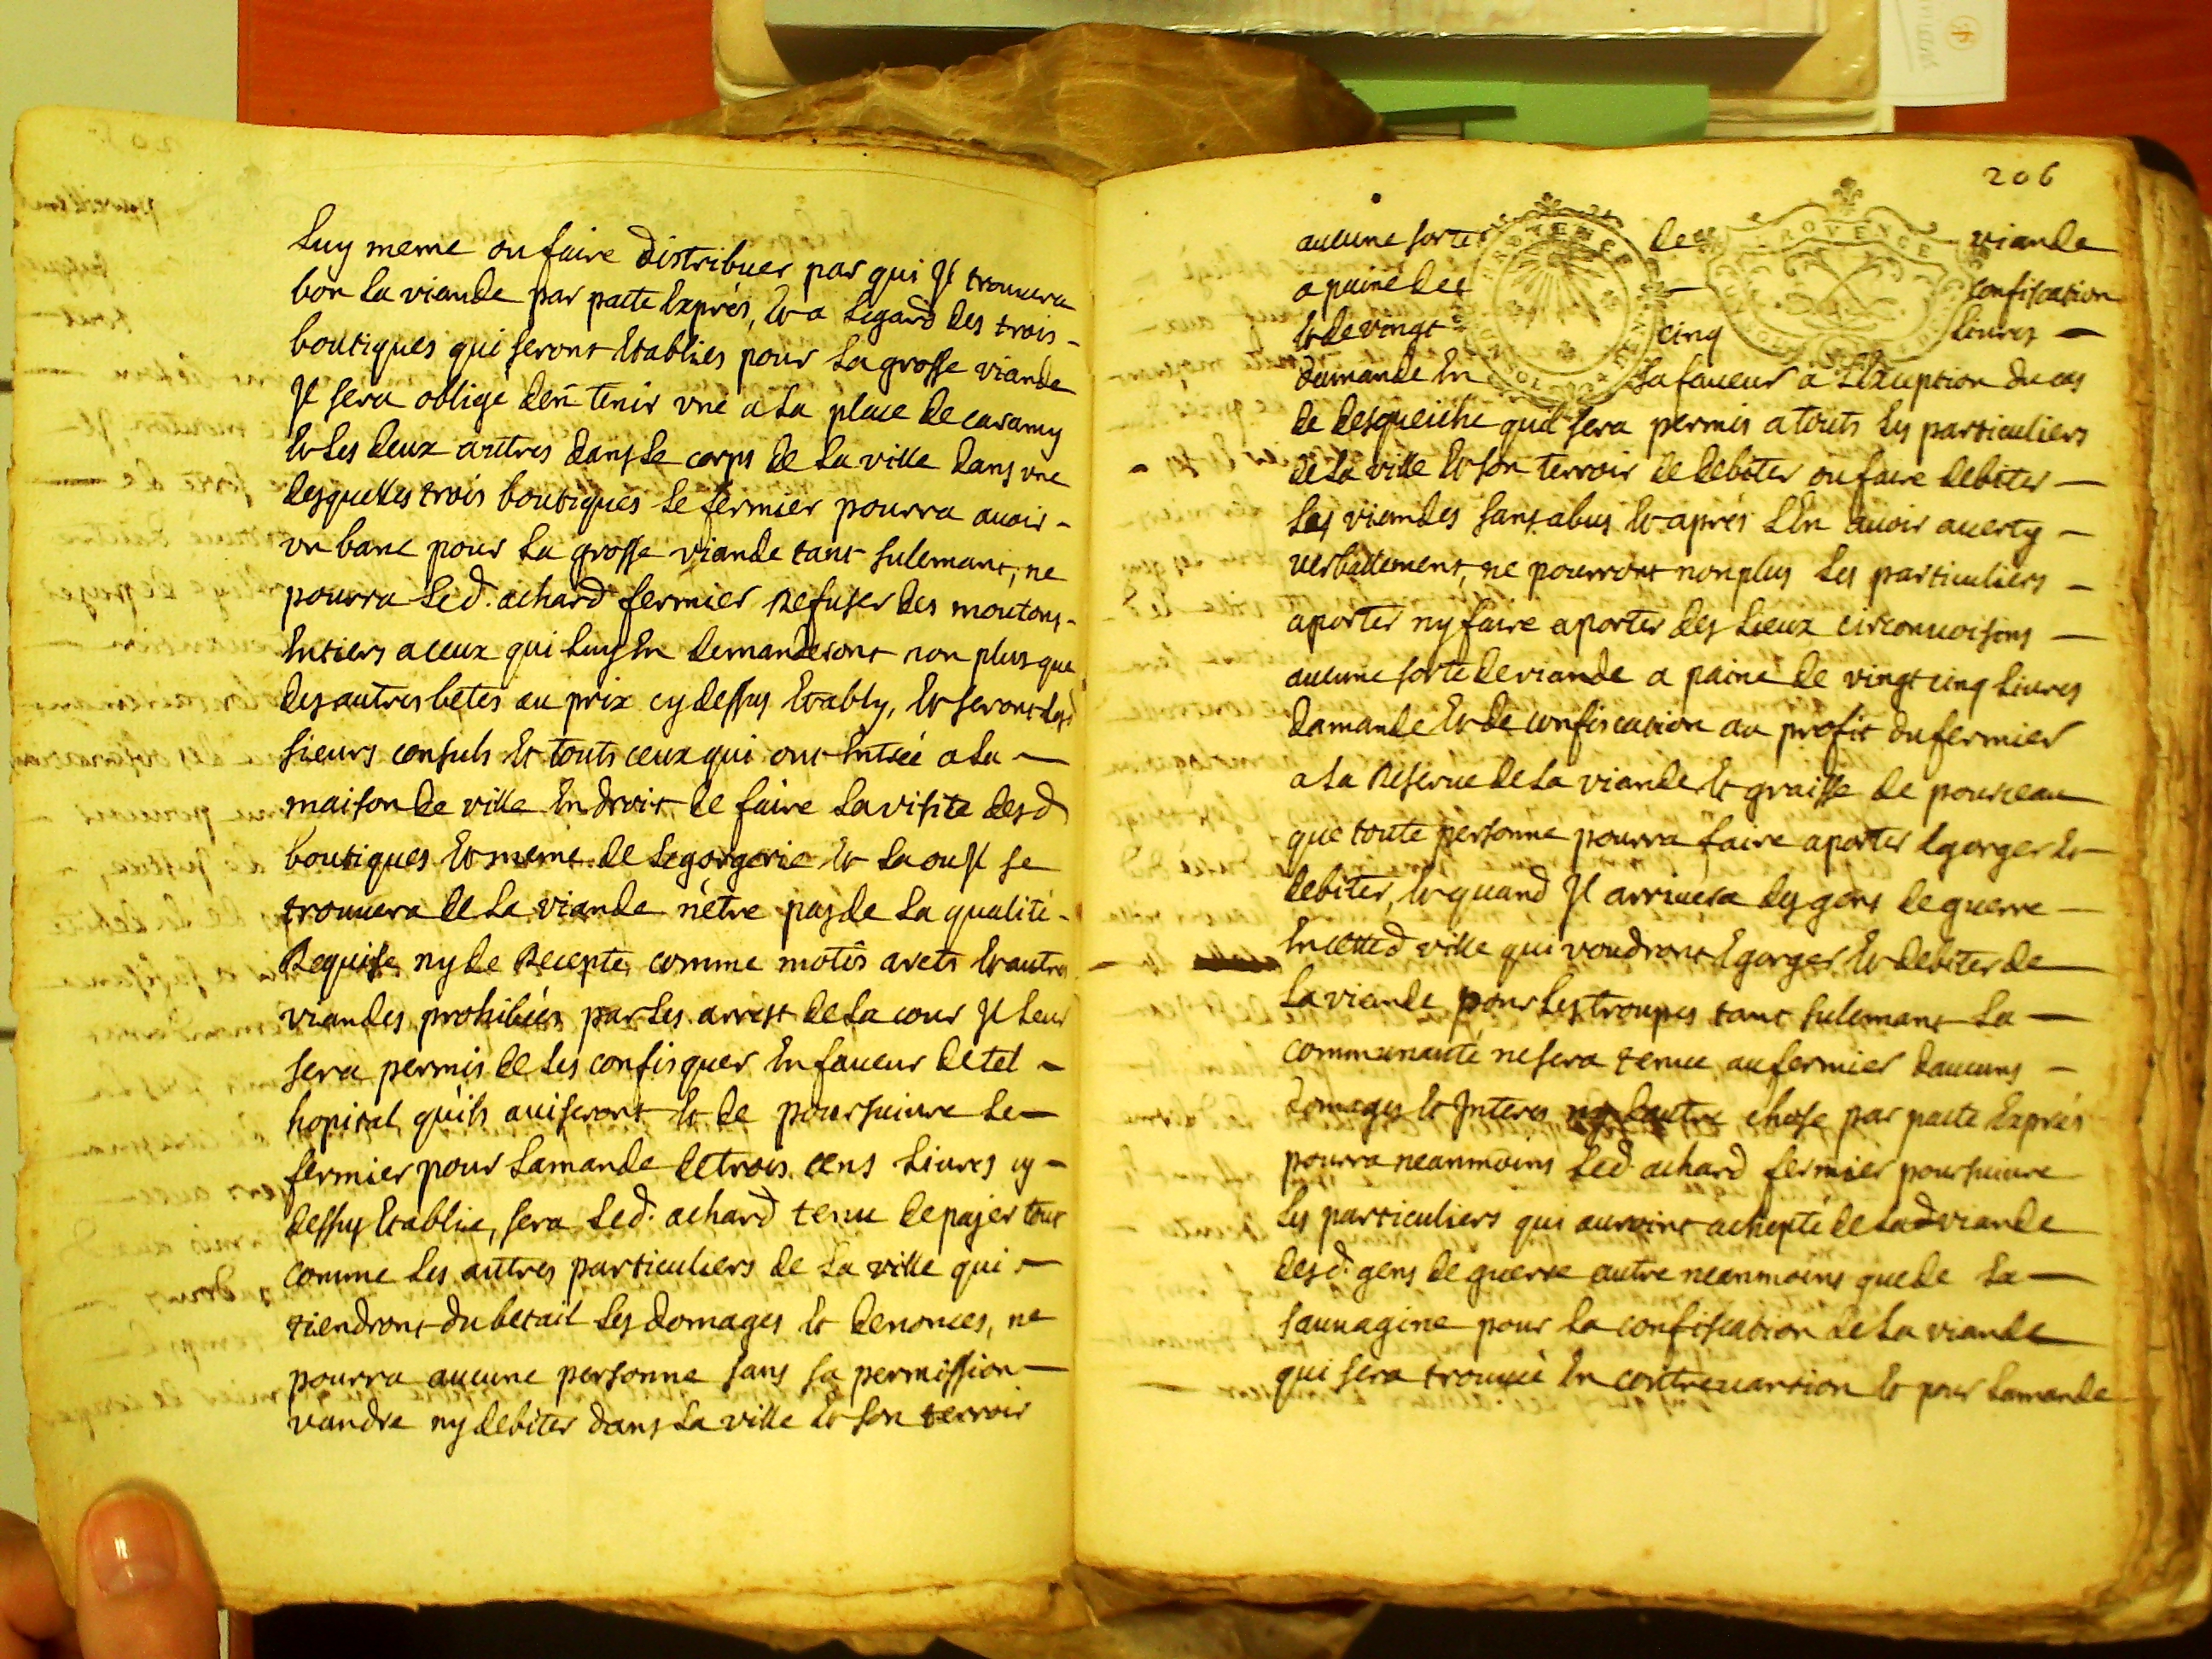 Luy meme ou faire distribuer par qui Jl trouuera
bon la viande par pacte Exprés, Et a Legard des trois -
boutiques qui seront Etablies pour La grosse viande
Jl sera obligé den tenir vne a La place de caramy
Et Les deux autres dans Le corps de La ville dans vne
desquelles trois boutiques Le fermier pourra auoir -
vn banc pour La grosse viande tant sulemant, ne
pourra Led. achard fermier Refuser des moutons -
Entiers a ceux qui Luy En demanderont non plus que
des autres betes au prix cy dessus Etably, Et seront Lesd
sieurs consuls Et touts ceux qui ont Entrée a La -
maison de ville En droit de faire La visite desd
boutiques Et meme de Legorgerie Et La ou Jl se
trouuera de La viande nétre pas de La qualité -
Requise ny de Recepte comme motôs arets Et autres
viandes prohibées par Les arrest de La cour Jl Leur
sera permis de Les confisquer En faueur de tel -
hopital quils auiseront Et de poursuiure Le -
fermier pour Lamande de trois cens Liures cy -
dessus Etablie, sera Led. achard tenu de payer tout
comme Les autres particuliers de La ville qui -
tiendront du betail Les domages Et denonces, ne
pourra aucune personne sans sa permission -
vandre ny debiter dans La ville Et son terroir
206
aucune sorte de viande
a paine de confiscation
Et de vingt cinq Liures -
damande En sa faueur a Lexception du cas
de desqueiche quil sera permis a touts Les particuliers
de La ville Et son terroir de debiter ou faire debiter -
Les viandes sans abus Et aprés LEn auoir auerty -
verballement, ne pourront non plus Les particuliers -
aporter ny faire aporter des Lieux circonuoisins -
aucune sorte de viande a paine de vingt cinq Liures
damande Et de confiscation au profit du fermier
a La Reserue de La viande Et graisse de pourceau
que toute personne pourra faire aporter Egorger Et
debiter, Et quand Jl arriuera des gens de guerre -
En cetted ville qui voudront Egorger Et debiter de
La viande pour Les troupes tant sulemant La -
communauté ne sera tenue au fermier daucuns -
domages Et Jnteres ny dautre chose par pacte Exprés
pourra neanmoins Led. achard fermier poursuiure
Les particuliers qui auroint achepté de Lad viande
desd. gens de guerre autre neanmoins que de La -
sauuagine pour La confiscation de La viande
qui sera trouuée En contreuantion Et pour Lamande